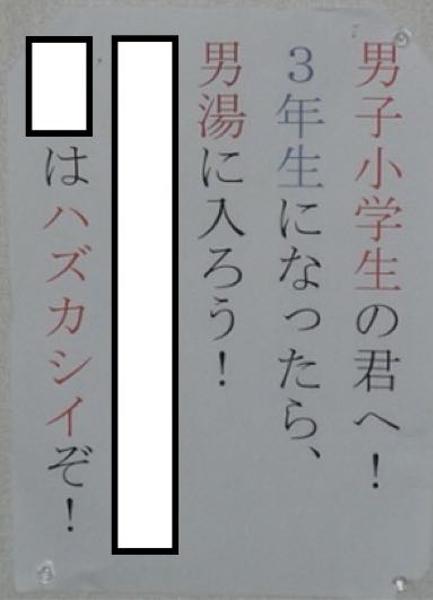 男子小学生の君へ！
3年生になったら、
男湯に入ろう！
はハズカシイぞ！